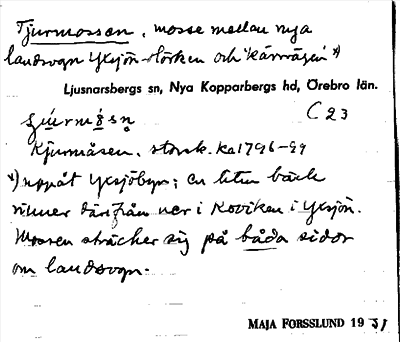 Tjurmossen, mosse mellan nya
landsvgn Yxsjön-Hörken och "kärrvägen" *)
Ljusnarsbergs sn, Nya Kopparbergs hd, Örebro län.
C 23
Kjurmåsen. storsk. ka 1796-99
*) uppåt Yxsjöbyn; en liten bäck
rinner därifrån ner i Koviken i Yxsjön.
Mossen sträcker sig på båda sidor
om landsvgn.
MAJA FORSSLUND 19 31